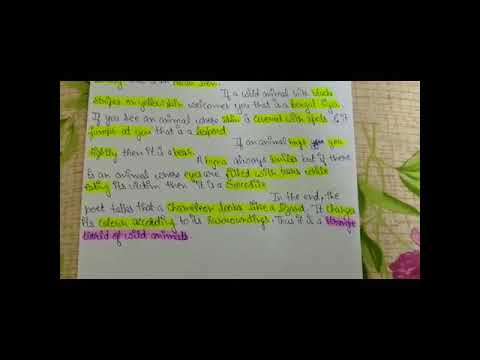 If a wild animal with black
stripes on yellow skin welcomes you that is a bengal tiger.
If you see an animal whose skin is covered with spots & it
jumps at you that is a leopard.
If an animal hugs you
tightly then it is a bear.
A hyena always smiles but if there
is an animal whose eyes are filled with tears while
eating its victim then it is a crocodile
In the end, the
poet talks that a chameleon looks like a lizard. It changes
its colour according to its surroundings. Thus it is a
world of wild animals.